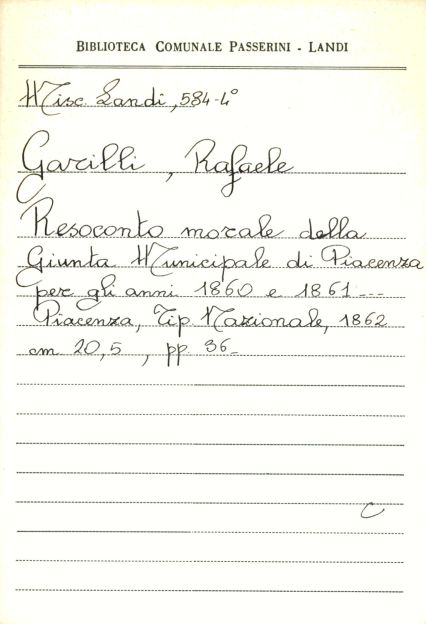 BIBLIOTECA COMUNALE PASSERINI - LANDI
Misc. Landi, 584-4°
Garilli, Rafaele
Resoconto morale della
Giunta Municipale di Piacenza
per gli anni 1860 e 1861---
Piacenza, Tip. Nazionale, 1862
cm 20,5, pp. 36-
C